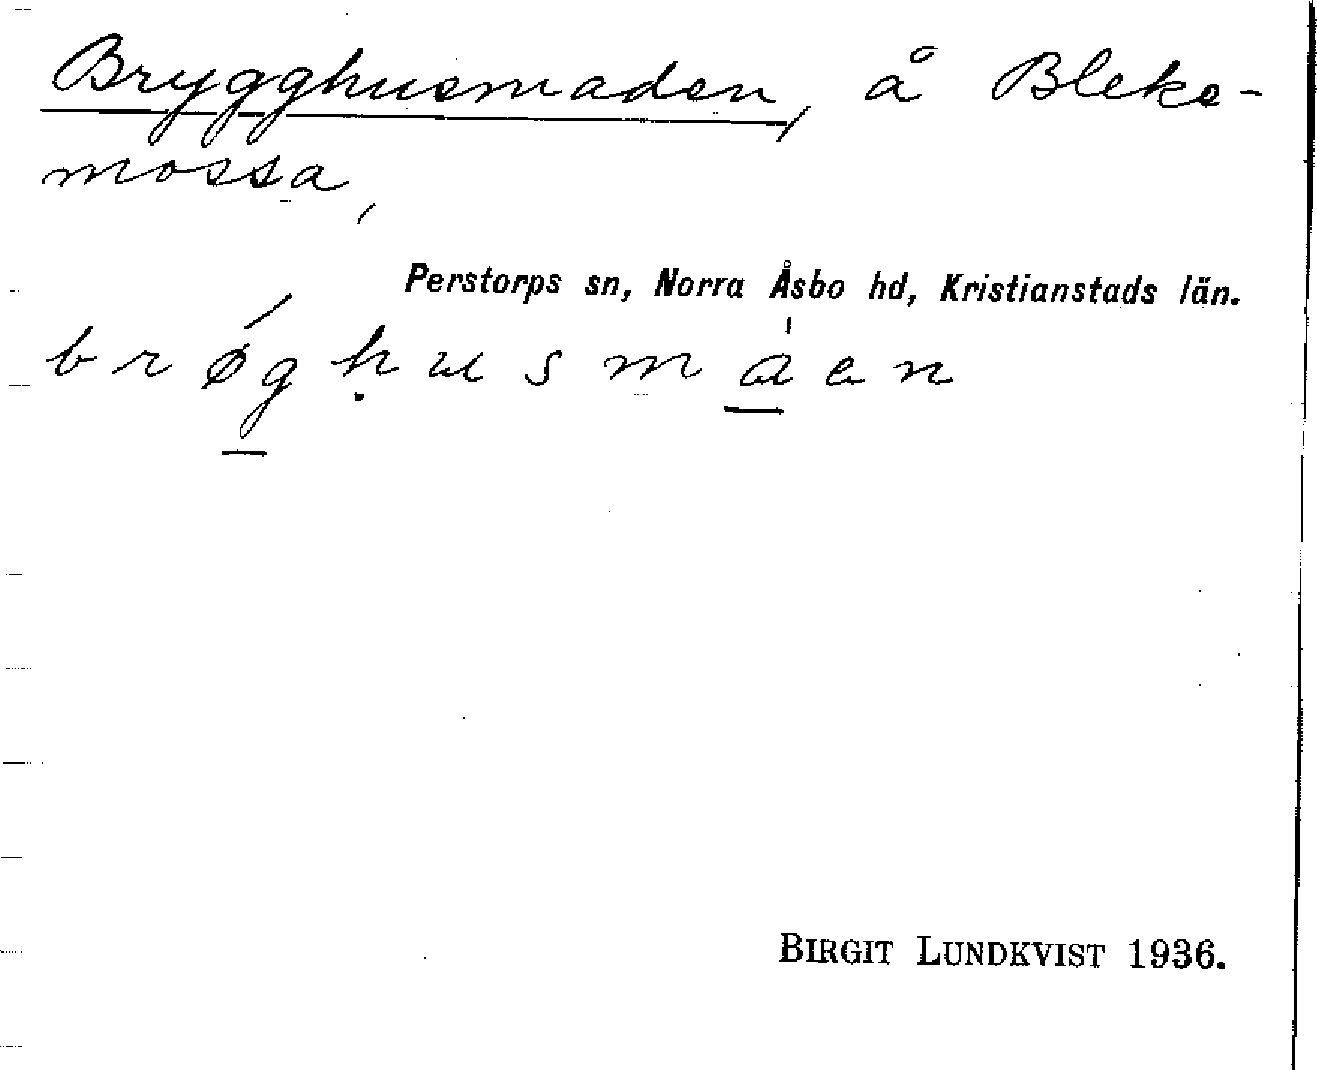 Brygghusmaden, å Bleke-
mossa,
Perstorps sn, Norra Åsbo hd, Kristianstads län.
brǿg̲ḥusma̲̍en
BIRGIT LUNDKVIST 1936.